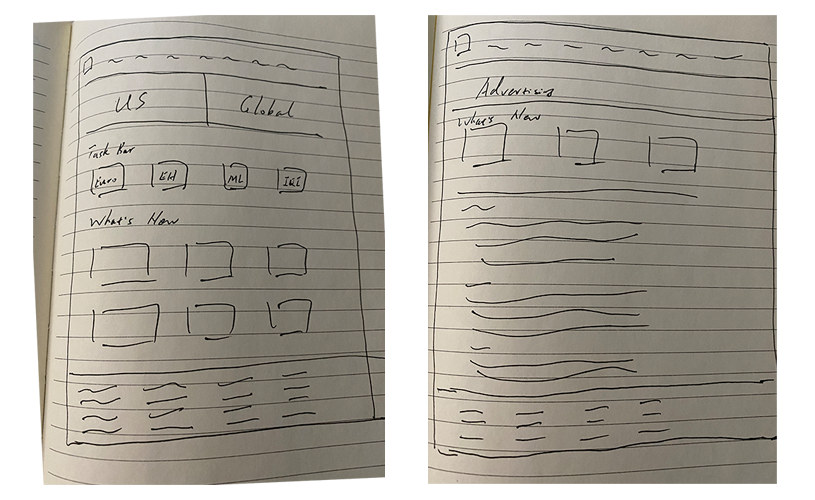 US Global
Task Bar
EH ML
What's New
Advertising
What's New